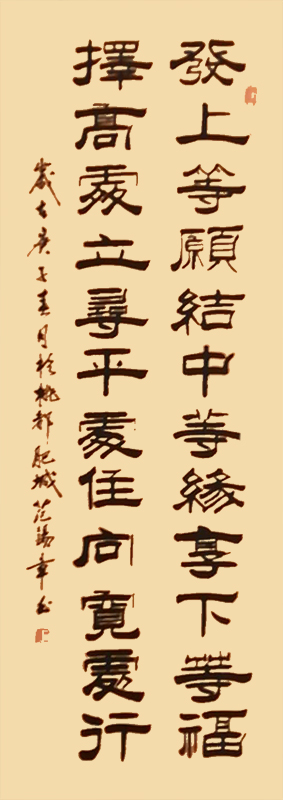 發上等願結中等緣享下等福
擇高處立尋平處住向寬處行
歲在庚子春月於桃都肥城范錫章書